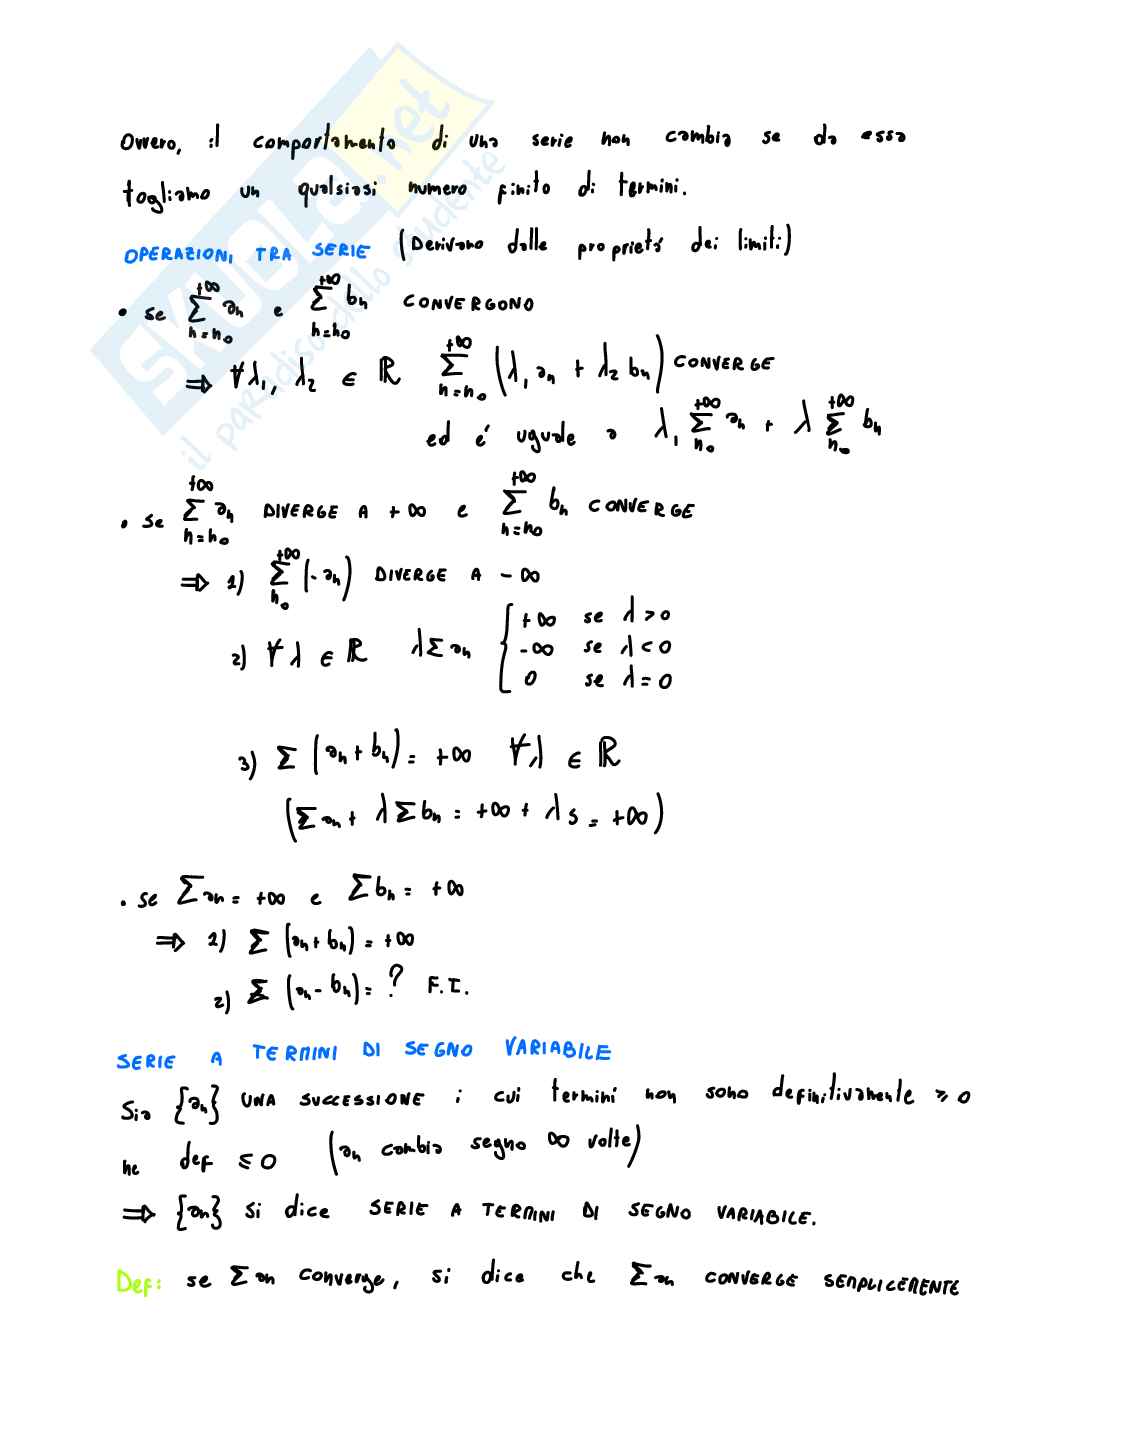 Ovvero, il comportamento di una serie non cambia se da essa
togliamo un qualsiasi numero finito di termini.
OPERAZIONI TRA SERIE (Derivano dalle proprietà dei limiti)
• se \sum_{n=n_0}^{+∞} a_n e \sum_{n=n_0}^{+∞} b_n CONVERGONO
⇒ ∀ λ_1, λ_2 ∈ ℝ \sum_{n=n_0}^{+∞} (λ_1 a_n + λ_2 b_n) CONVERGE
ed é uguale a λ_1 \sum_{n_0}^{+∞} a_n + λ \sum_{n_0}^{+∞} b_n
• se \sum_{n=n_0}^{+∞} a_n DIVERGE A +∞ e \sum_{n=n_0}^{+∞} b_n CONVERGE
⇒ 1) \sum_{n_0}^{+∞} (-a_n) DIVERGE A -∞
2) ∀ λ ∈ ℝ λ Σ a_n { +∞ se λ > 0
-∞ se λ < 0
0 se λ = 0
3) Σ (a_n + b_n) = +∞ ∀ λ ∈ ℝ
(Σ a_n + λ Σ b_n = +∞ + λ s = +∞)
• se Σ a_n = +∞ e Σ b_n = +∞
⇒ 1) Σ (a_n + b_n) = +∞
2) Σ (a_n - b_n) = ? F.I.
SERIE A TERMINI DI SEGNO VARIABILE
Sia {a_n} UNA SUCCESSIONE i cui termini non sono definitivamente ≥ 0
ne def ≤ 0 (a_n cambia segno ∞ volte)
⇒ {a_n} si dice SERIE A TERMINI DI SEGNO VARIABILE.
Def: se Σ a_n converge, si dice che Σ a_n CONVERGE SEMPLICEMENTE
SKUOLA.net
il paradiso dello studente